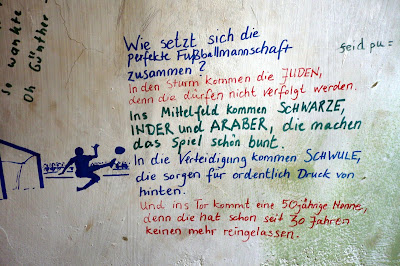 Wie setzt sich die
perfekte Fußballmannschaft
zusammen?
In den Sturm kommen die JUDEN,
denn die dürfen nicht verfolgt werden.
Ins Mittelfeld kommen SCHWARZE,
INDER und ARABER, die machen
das Spiel schön bunt.
In die Verteidigung kommen SCHWULE,
die sorgen für ordentlich Druck von
hinten.
Und ins Tor kommt eine 50jährige Nonne,
denn die hat schon seit 30 Jahren
keinen mehr reingelassen.
So wankte
Oh Günther-
seid pu=